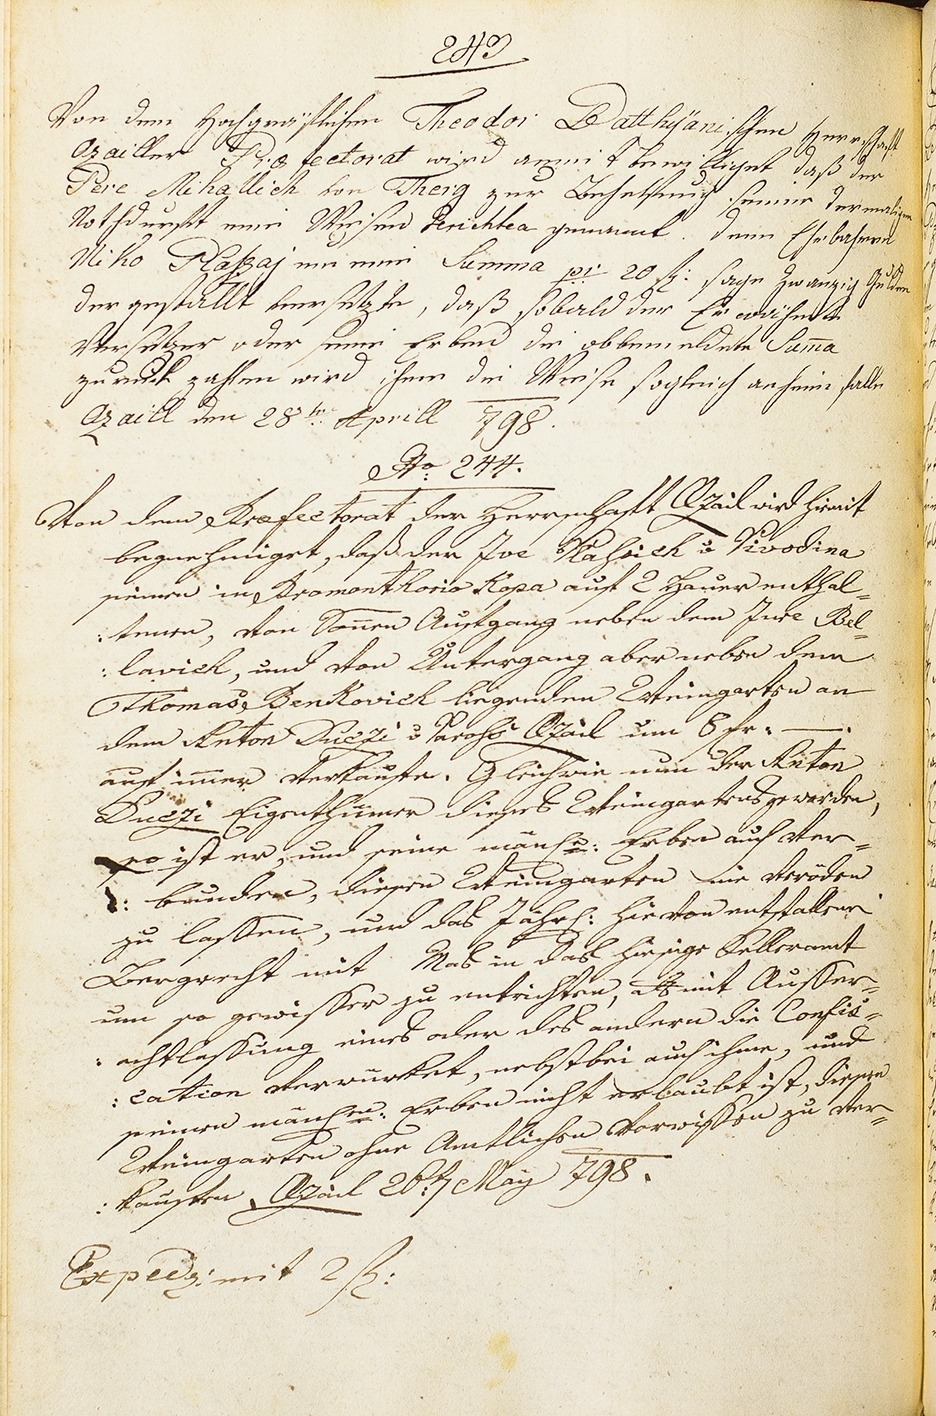 243
Von dem Hochgräflichen Theodor Batthyánischen Herrschaft
Ozailler Præfectorat wird anmit bewilliget daß der
Pere Mihallich von Therg zur Behelfung seiner dermaligen
Nothdurft eine Wiesen Perichtca genannt dem Ehrbahren
Miko Plassaj um eine Summa pr 20 fl: sage zwanzig Gulden
der gestallt versetzte, daß sobald der Erwöhnte
Versetzer oder seine Erben die obbemeldete Sum̄a
zurück zahlen wird ihme die Wiese sogleich anheim falle
Ozaill den 28ten Aprill 798.
No: 244.
Von dem Præfectorat der Herrschaft Ozail wird hiemit
begnehmiget, daß der Ive v Vivodina
seinen in Promonthorio Kopa auf 2 Hauer enthal-
:tenen, von Son̄en Aufgang neben dem Jure Bel-
:lavich, und von Untergang aber neben dem
Thomas Benkovich liegenden Weingarten an
dem Anton Duczi v Ozail um 8 fr. —.
auf im̄er verkaufte. Gleichwie nun der Anton
Duczi Eigenthümer dieses Weingartens geworden,
so ist er, und seine mänh: Erben auch ver-
: bunden, diesen Weingarten nie veröden
zu lassen, und das Jährl: hievon entfallene
Bergrecht mit Mas in das hiesige Kelleramt
um so gewisser zu entrichten, als mit Ausser-
: achtlassung eines oder des andern die Confis-
: cation verwürket, nebstbei auch ihme, und
seinen mänhen: Erben nicht erlaubt ist, diesen
Weingarten ohne Amtlichen Vorwissen zu ver-
: kaufen. Ozail 26ten May 798.
Expedz: mit 2 fl: